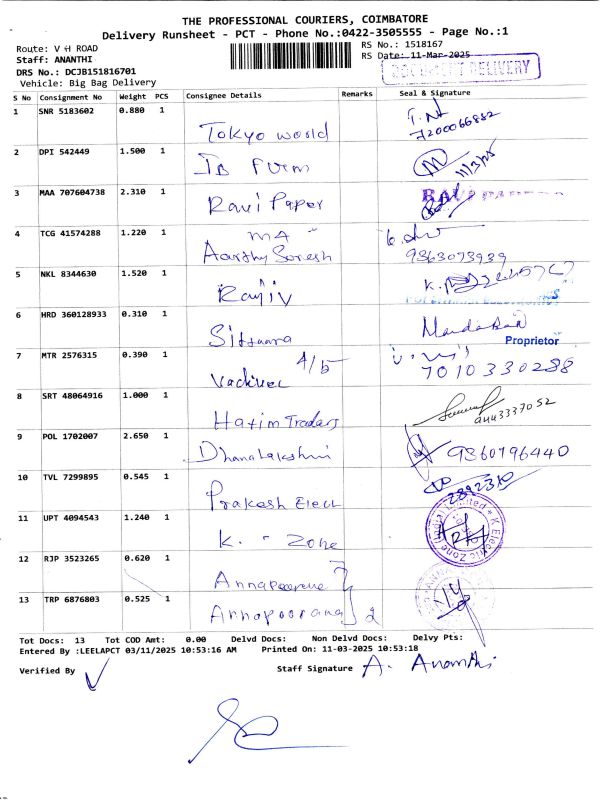 THE PROFESSIONAL COURIERS, COIMBATORE
Delivery Runsheet - PCT - Phone No.:0422-3505555 - Page No.:1
Route: V H ROAD
RS No.: 1518167
Staff: ANANTHI
RS Date: 11-Mar-2025
DRS No.: DCJB151816701
DOCUMENT DELIVERY
Vehicle: Big Bag Delivery
S No Consignment No Weight PCS Consignee Details Remarks Seal & Signature
1 SNR 5183602 0.880 1 Tokyo world 7200066882
2 DPI 542449 1.500 1 11/3/25
3 MAA 707604738 2.310 1 Ravi Paper
4 TCG 41574288 1.220 1 Aarthy Suresh 9363073939
5 NKL 8344630 1.520 1 Rajiv
6 HRD 360128933 0.310 1 Sithaara Proprietor
7 MTR 2576315 0.390 1 Vadivel 4/5 7010330288
8 SRT 48064916 1.000 1 Hatim Traders
9 POL 1702007 2.650 1 Dhanalakshmi 9360796440
10 TVL 7299895 0.545 1 Prakash Elect 2892310
11 UPT 4094543 1.240 1 K. - Zone
12 RJP 3523265 0.620 1 Annapoorna
13 TRP 6876803 0.525 1 Annapoorana 2
Tot Docs: 13 Tot COD Amt: 0.00 Delvd Docs: Non Delvd Docs: Delvy Pts:
Entered By :LEELAPCT 03/11/2025 10:53:16 AM Printed On: 11-03-2025 10:53:18
Verified By Staff Signature A. Ananthi